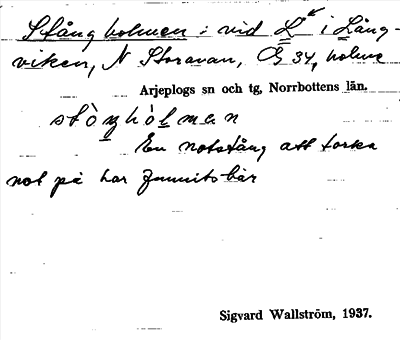 Stångholmen : vid L i Lång-
viken, N Storavan, 34, holme
Arjeplogs sn och tg, Norrbottens län.
stòŋhòlmen
En notstång att torka
not på har funnits här
Sigvard Wallström, 1937.